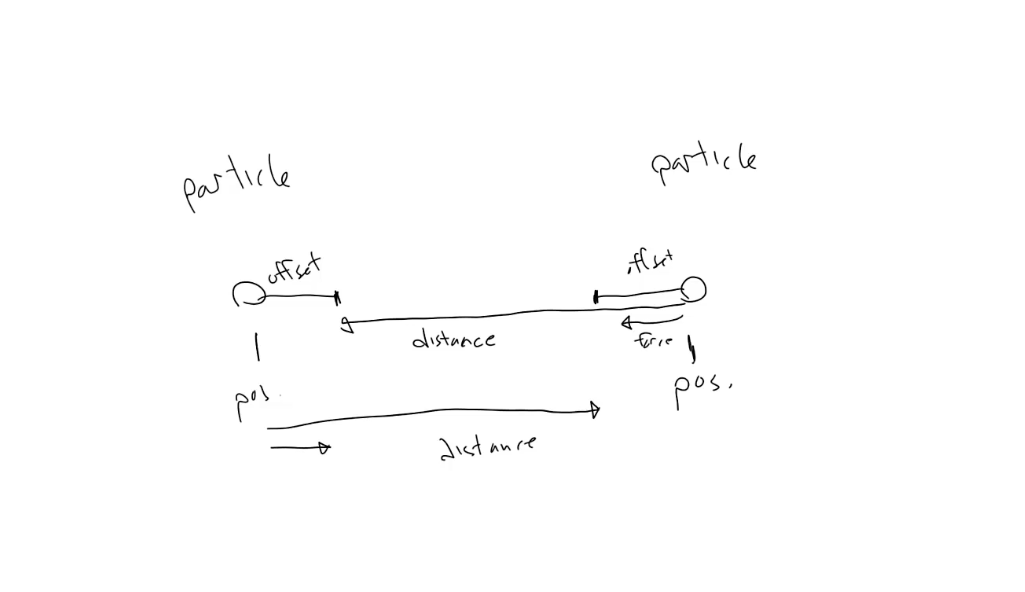 particle
particle
offset
offset
distance
force
pos.
pos.
distance